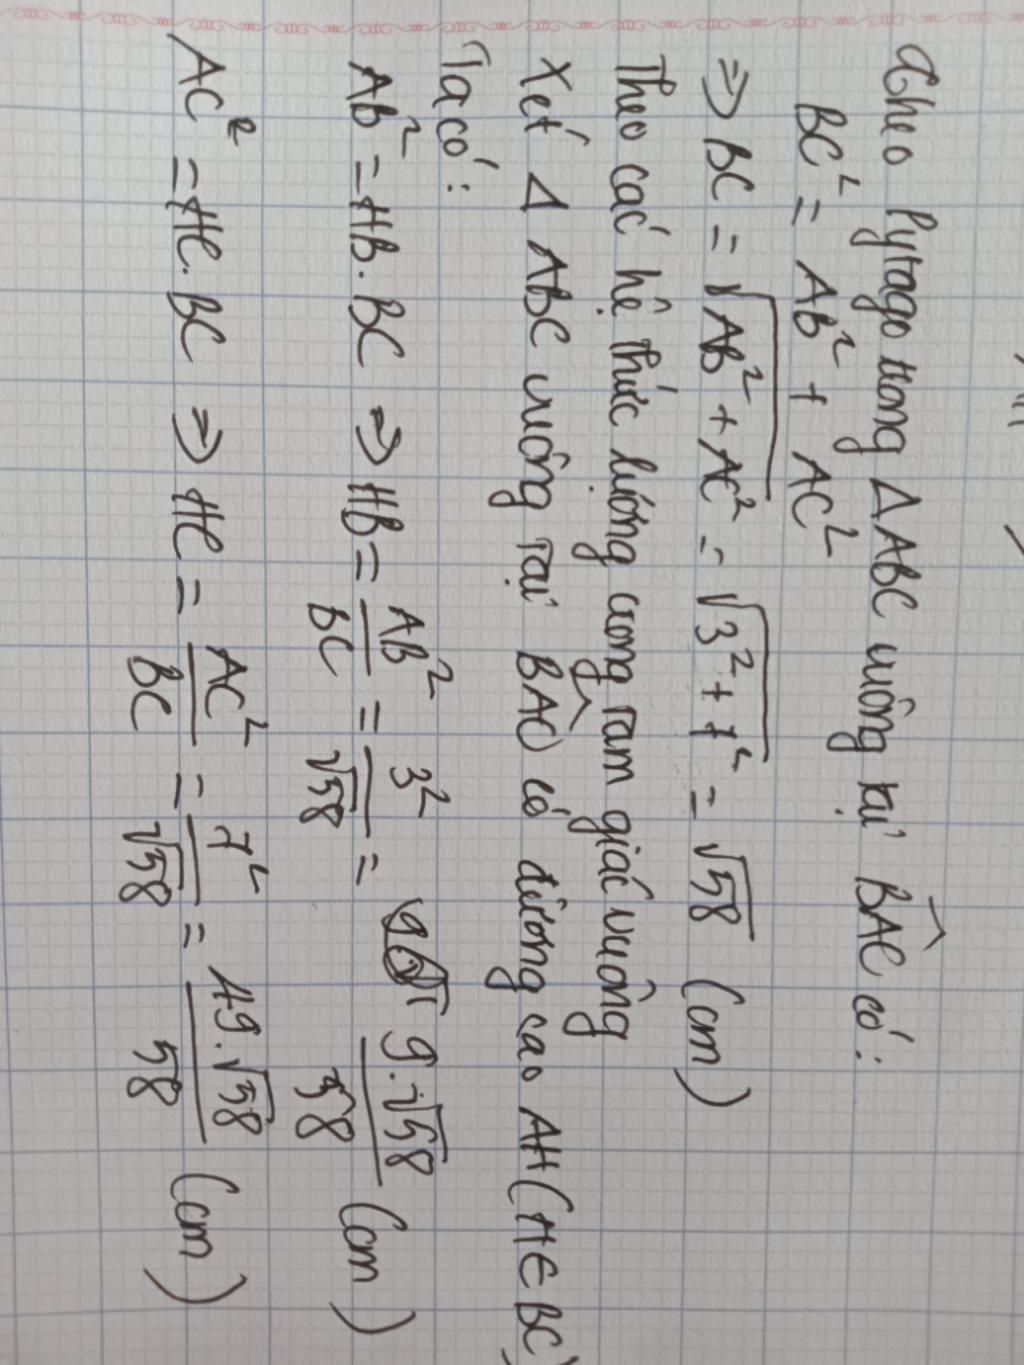 Theo Pytago trong Δ ABC vuông tại \widehat{BAC} có:
BC² = AB² + AC²
=> BC = √(AB² + AC²) = √(3² + 7²) = √58 (cm)
Theo các hệ thức lượng trong tam giác vuông
Xét Δ ABC vuông tại \widehat{BAC} có đường cao AH (H∈BC)
Ta có:
AB² = HB.BC => HB = AB²/BC = 3²/√58 = 9.√58/58 (cm)
AC² = HC.BC => HC = AC²/BC = 7²/√58 = 49.√58/58 (cm)